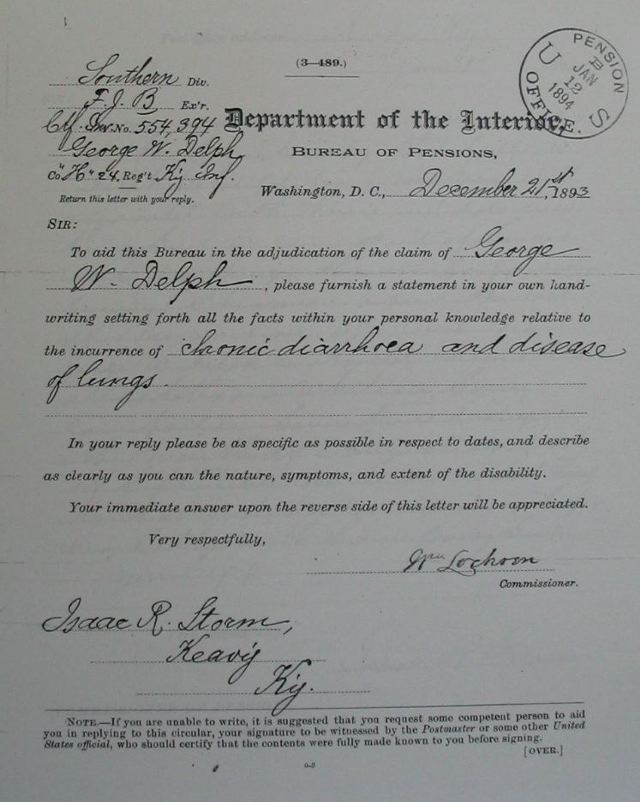 (3—489.)
Southern Div.
F. J. B Ex'r.
Ctf. Inv. No. 554,394
George W. Delph
Co "H" 24, Reg't Ky Inf.
Return this letter with your reply.
U S PENSION OFFICE.
B
JAN
12
1894
Department of the Interior,
BUREAU OF PENSIONS,
Washington, D. C., December 21st, 1893
SIR:
To aid this Bureau in the adjudication of the claim of George
W. Delph, please furnish a statement in your own hand-
writing setting forth all the facts within your personal knowledge relative to
the incurrence of chronic diarrhoea and disease
of lungs.
In your reply please be as specific as possible in respect to dates, and describe
as clearly as you can the nature, symptoms, and extent of the disability.
Your immediate answer upon the reverse side of this letter will be appreciated.
Very respectfully,
Wm Lochren
Commissioner.
Isaac R. Storm,
Keavy
Ky.
NOTE.—If you are unable to write, it is suggested that you request some competent person to aid
you in replying to this circular, your signature to be witnessed by the Postmaster or some other United
States official, who should certify that the contents were fully made known to you before signing.
[OVER.]